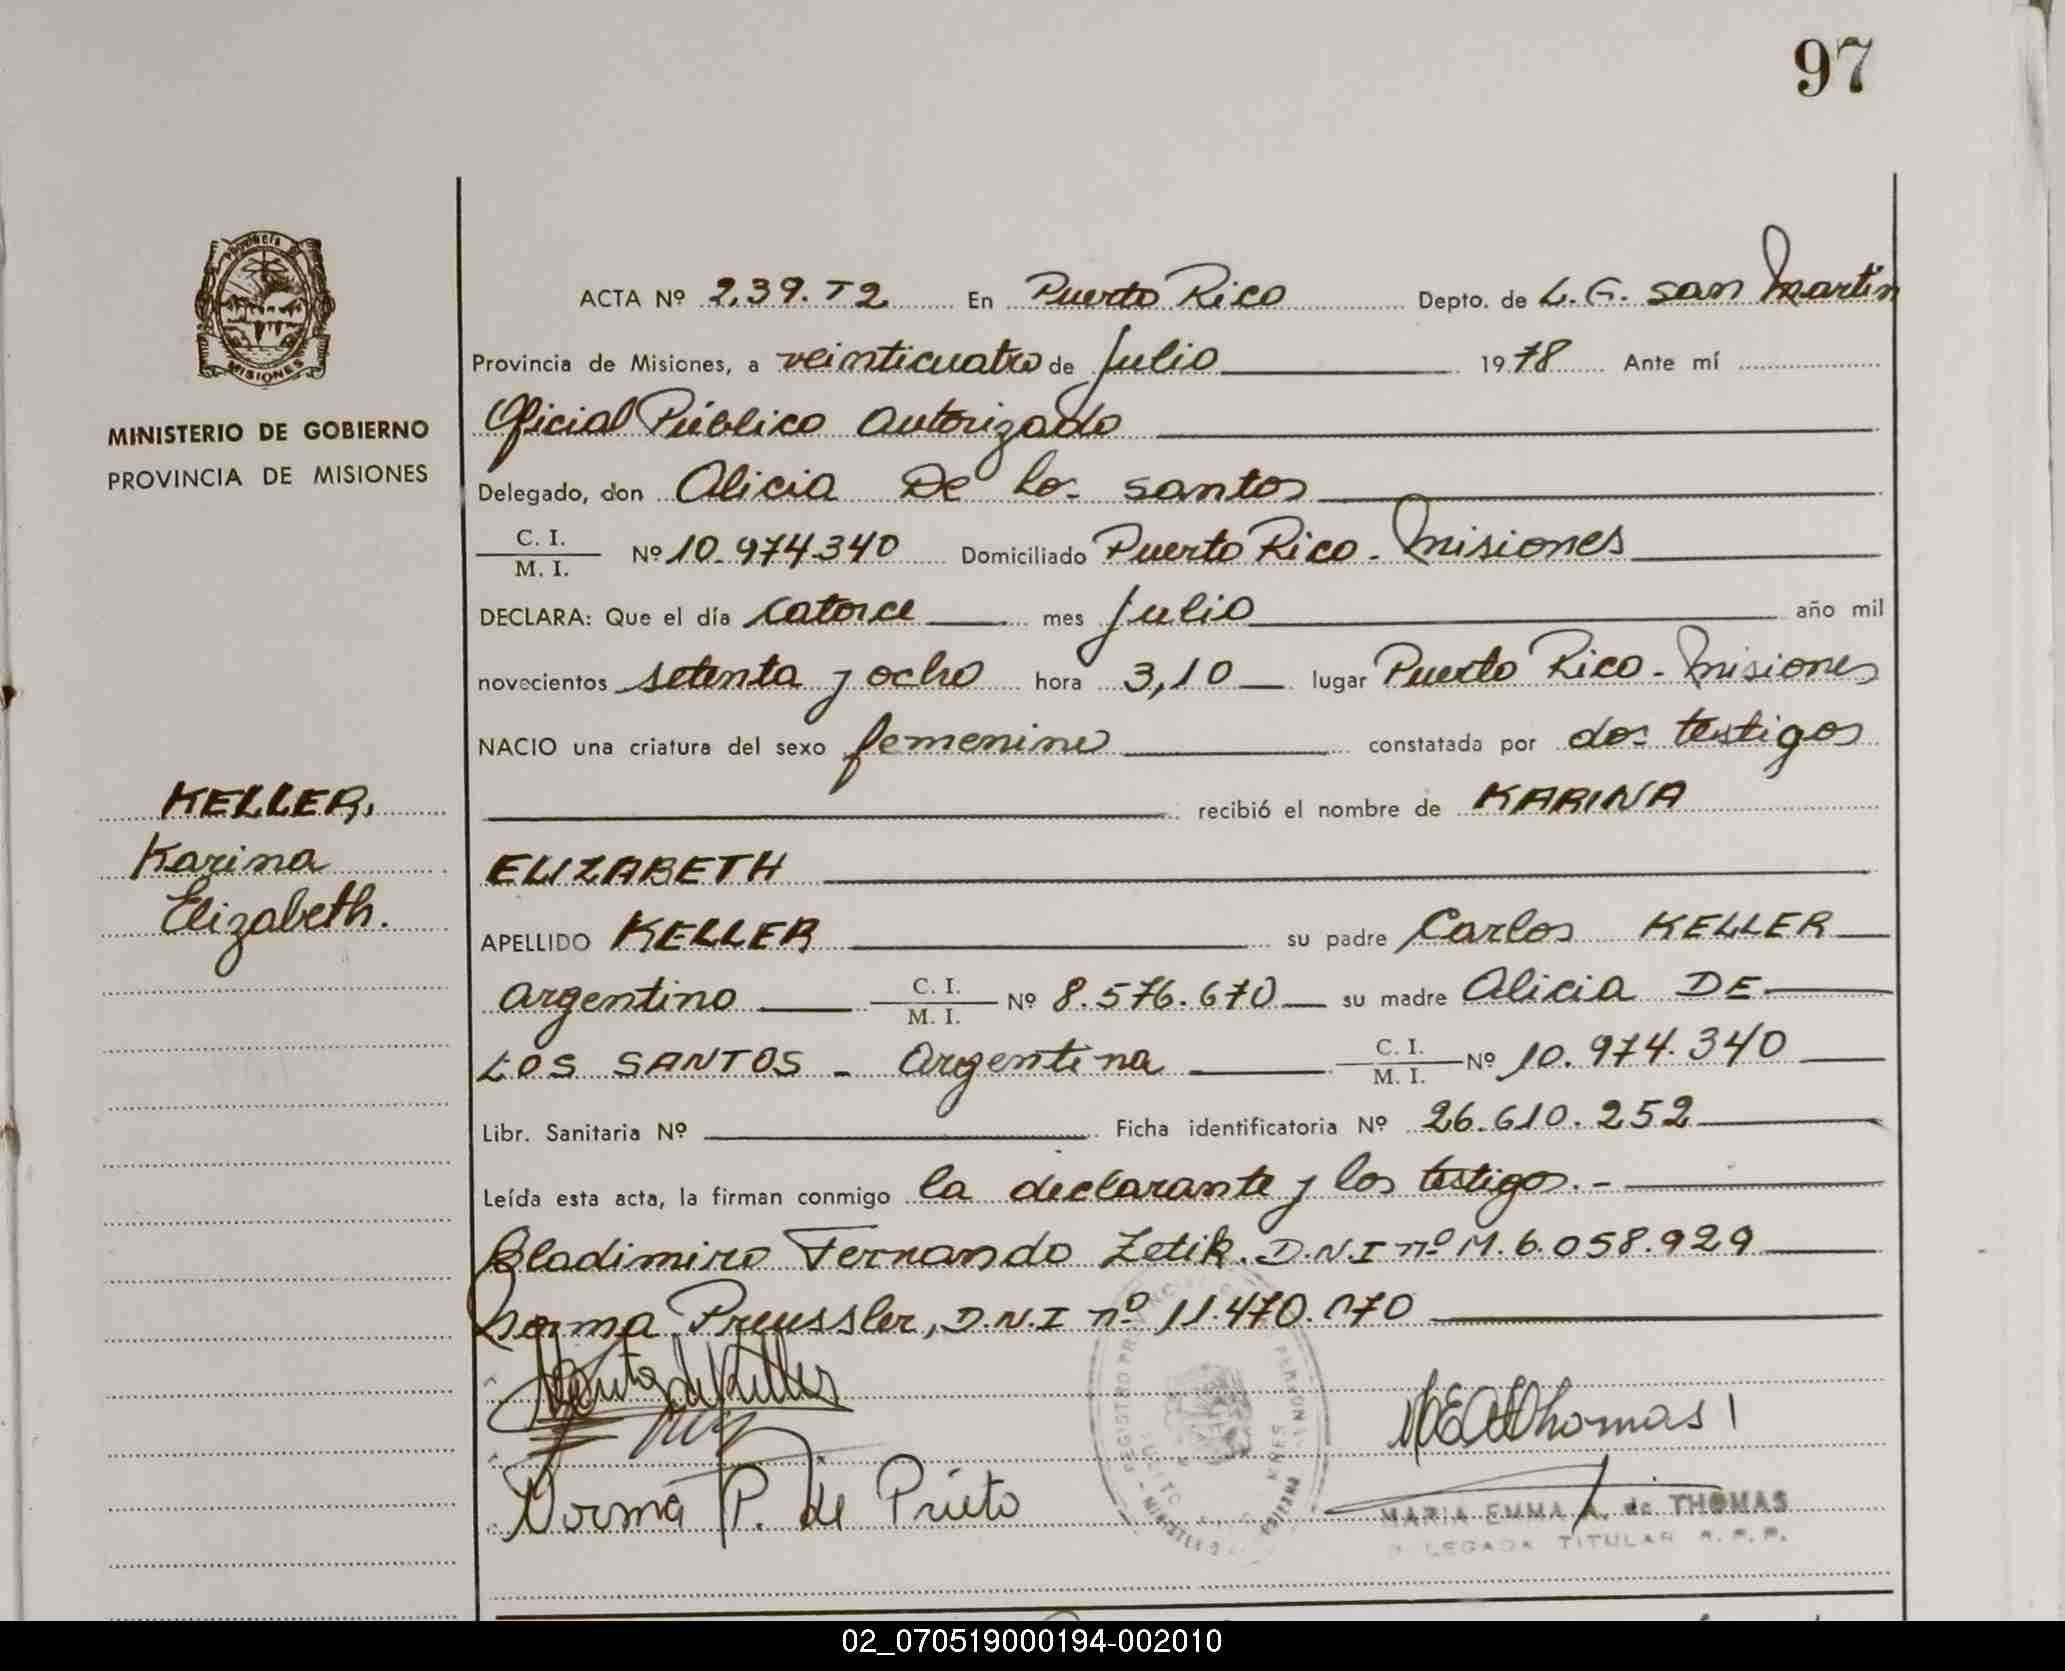 97
Provincia de
MISIONES
MINISTERIO DE GOBIERNO
PROVINCIA DE MISIONES
KELLER,
Karina
Elizabeth.
ACTA Nº 239. T2 En Puerto Rico Depto. de L. G. San Martin
Provincia de Misiones, a veinticuatro de Julio 1978 Ante mí
Oficial Público Autorizado
Delegado, don Alicia De los Santos
C. I.
M. I. Nº 10.974.340 Domiciliado Puerto Rico - Misiones
DECLARA: Que el día catorce mes Julio año mil
novecientos setenta y ocho hora 3,10 lugar Puerto Rico - Misiones
NACIO una criatura del sexo femenino constatada por dos testigos
recibió el nombre de KARINA
ELIZABETH
APELLIDO KELLER su padre Carlos KELLER
Argentino C. I.
M. I. Nº 8.576.670 su madre Alicia DE
LOS SANTOS - Argentina C. I.
M. I. Nº 10.974.340
Libr. Sanitaria Nº Ficha identificatoria Nº 26.610.252
Leída esta acta, la firman conmigo la declarante y los testigos.-
Bladimiro Fernando Zetik. D.N.I nº M. 6.058.929
Norma Preussler, D.N.I nº 11.470.070
de Keller
Thomas
Norma P. de Prieto
MARIA EMMA A. de THOMAS
DELEGADA TITULAR R. P. P.
02_070519000194-002010